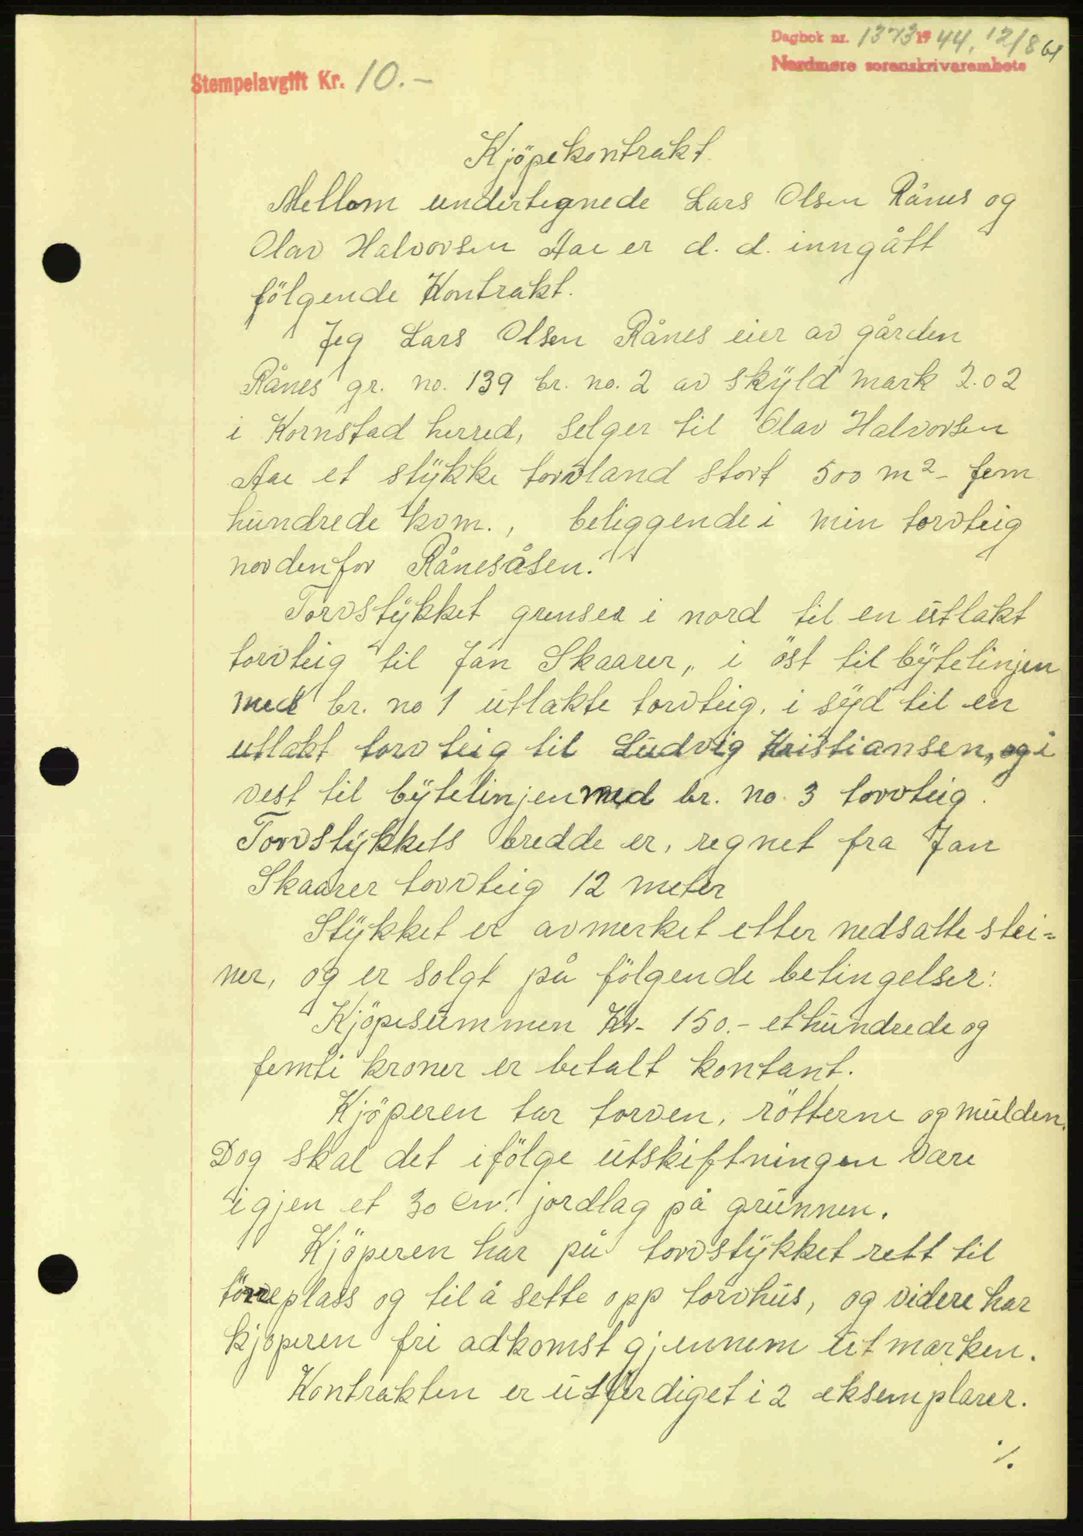 Dagbok nr. 1373 19 44, 12/8 61
Nordmøre sorenskriverembete
Stempelavgift Kr. 10.-
Kjöpekontrakt.
Mellom undertegnede Lars Olsen Rånes og
Olav Halvorsen Aae er d. d. inngått
fölgende Kontrakt.
Jeg Lars Olsen Rånes eier av gården
Rånes gr. no. 139 br. no. 2 av skyld mark 2.02
i Kornstad herred, selger til Olav Halvorsen
Aae et stykke torvland stort 500 m² - fem
hundrede kvm., beliggende i min torvteig
nordenfor Rånesåsen.
Torvstykket grenser i nord til en utlakt
torvteig til Jan Skaarer, i öst til bytelinjen
med br. no 1 utlakte torvteig, i syd til en
utlakt torvteig til Ludvig Kristiansen, og i
vest til bytelinjen med br. no. 3 torvteig.
Torvstykkets bredde er, regnet fra Jan
Skaarer torvteig 12 meter
Stykket er avmerket etter nedsatte stei=
ner, og er solgt på fölgende betingelser:
Kjöpesummen Kr. 150.- ethundrede og
femti kroner er betalt kontant.
Kjöperen tar torven, rötterne og mulden.
Dog skal det ifölge utskiftningen være
igjen et 30 cm. jordlag på grunnen.
Kjöperen har på torvstykket rett til
törreplass og til å sette opp torvhus, og videre har
kjöperen fri adkomst gjennem utmarken.
Kontrakten er utferdiget i 2 eksemplarer.
./.